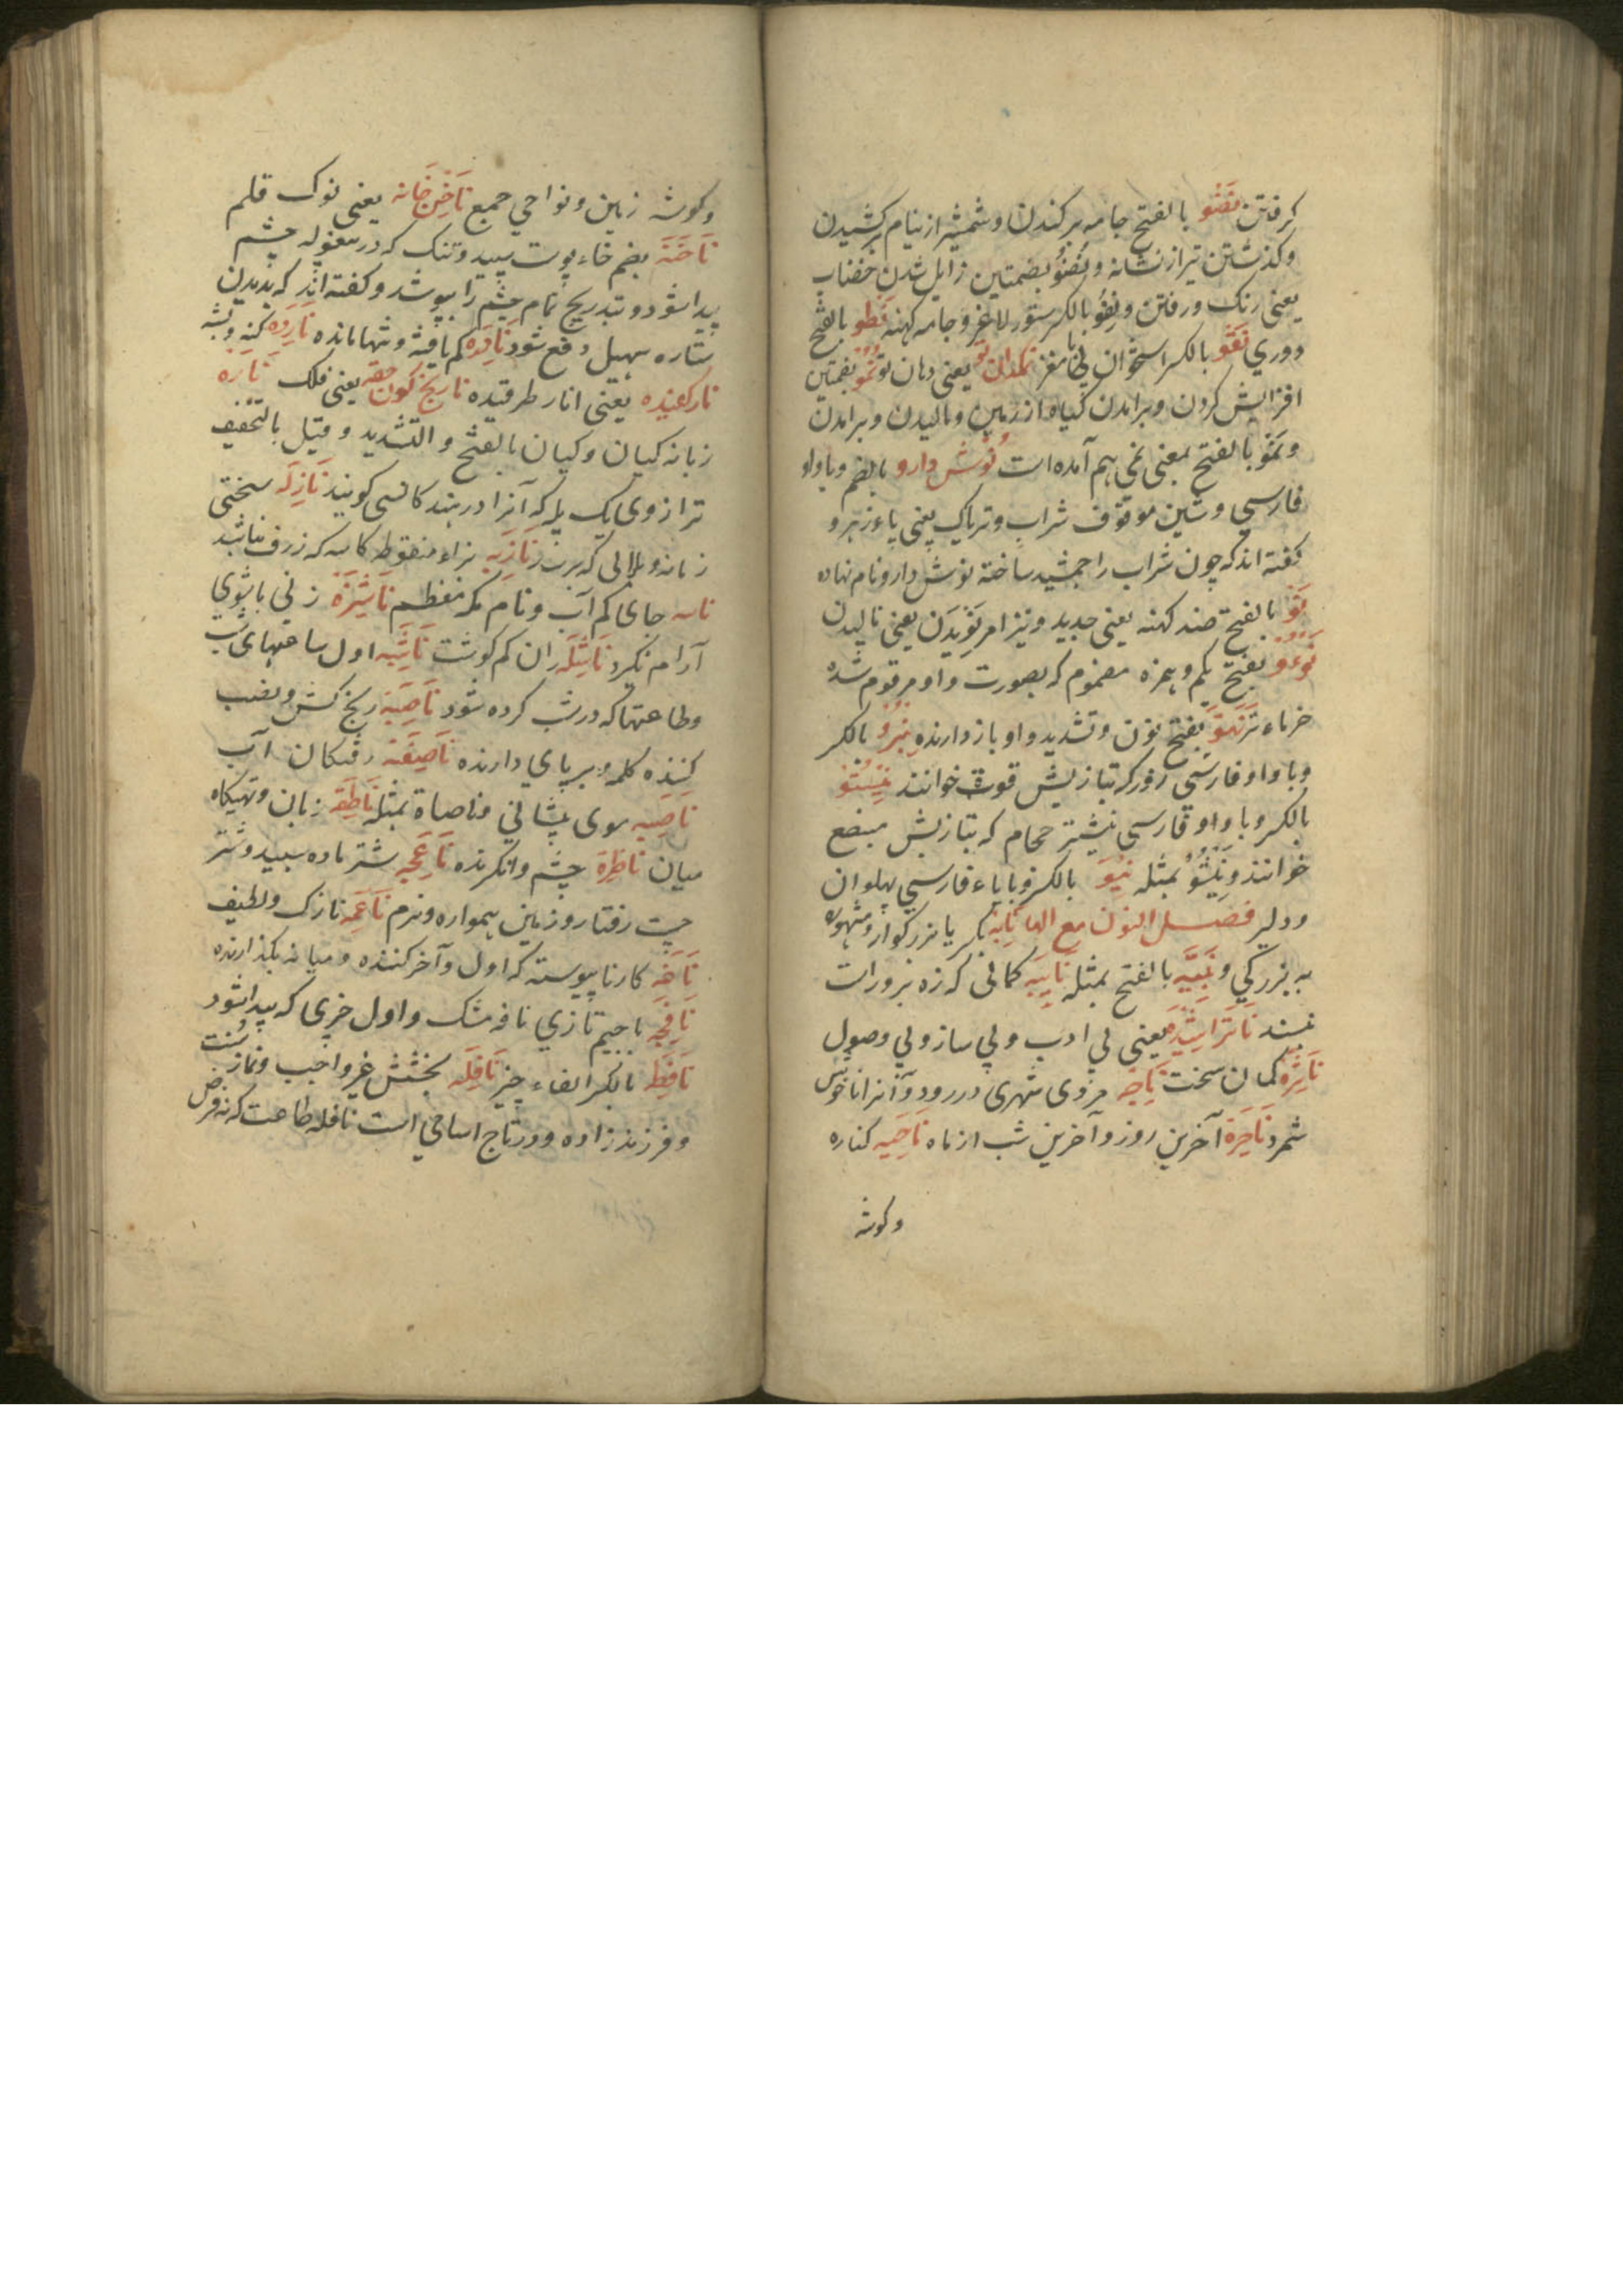 کرفتن نضو بالفتح جامه برکندن و شمشیر از نیام برکشیدن
و کذشتن تیر از نشانه و نُضُوّ بضمتین زایل شدن خضاب
یعنی رنک و رفتن و نِضو بالکسر ستور لاغر و جامه کهنه نَطو بالفتح
دوری نَقو بالکسر استخوان با مغز نمکدان تو یعنی دهان تو نُموّ بضمتین
افزایش کردن و برامدن کیاه از زمین و بالیدن و برامدن
و نَمْو بالفتح بمعنی نمی هم آمده است نُوش دارو بالضم و باواو
فارسی و شین موقوف شراب و تریاک یعنی پاءزهر و
کفته اند که چون شراب را جمشید ساخته نوش دارو نام نهاده
نَو بالفتح ضد کهنه یعنی جدید و نیز امر نَویدن یعنی نالیدن
نَوءو بفتح یکم و همزه مضموم که بصورت واو مرقوم شده
خرماء تر نَهوّ بفتح نون و تشدید واو بازدارنده نیرو بالکسر
و باواو فارسی زور که بتازیش قوت خوانند نیشتو
بالکسر و باواو فارسی نیشتر حجام که بتازیش مبضع
خوانند و نیشو بمثله نیو بالکسر و بایاء فارسی پهلوان
و دلیر فصل النون مع الها نابه بکسر با بزرکوار و مشهوره
به بزرکی و نَبیه بالفتح بمثله نابیه کمانی که زه بزور است
نبسند ناتراشیده یعنی بی ادب و بی ساز و بی وصول
ناتره کمان سخت ناجه مردی شهری در رود و آنرا ناخوش
شمرد ناحِرة آخرین روز و آخرین شب از ماه ناحیه کناره
و کوشه
و کوشه زمین و نواحی جمع ناخن خانه یعنی نوک قلم
ناخنه بضم خاء پوست سپید و تنک که در بیغوله چشم
پیدا شود و بتدریج تمام چشم را بپوشد و کفته اند که بدیدن
ستاره سهیل دفع شود نادره کم یافته و تنها مانده نارده کنه و پشه
نارکفیده یعنی انار طرقیده نارنج کون حقه یعنی فلک ناره
زبانه کپان و کپان بالفتح و التشدید و قیل بالتخفیف
ترازوی یک پله که آنرا در هند کانسی کویند نازِله سختی
زمانه و بلایی که برسد نازیه بزاء منقوط کاسه که ژرف نباشد
ناسه جای کم آب و نام مکه معظم ناشِزة زنی باشوی
آرام نکیرد ناشِله ران کم کوشت ناشِیه اول ساعتهای شب
و طاعتها که در شب کرده شود ناصِبه رنج کش و نصب
کننده کلمه و برپای دارنده ناصِفه رفتکان آب
ناصیه موی پیشانی و ناصاة بمثله ناطِقه زبان و تهیکاه
میان ناظِرة چشم و انکرنده ناعِجه شتر ماده سپید و شتر
چست رفتار و زمین همواره و نرم ناعِمه نازک و لطیف
نافه کار ناپیوسته که اول و آخر کننده و میانه بکذارنده
نافِجه باجیم تازی نافه مشک و اول چیزی که پیدا شود
نافِطه بالکسر الفاء چیز نافِله بخشش غیر واجب و نماز سُنت
و فرزندزاده و در تاج اسامی است نافله طاعت که نه فرض